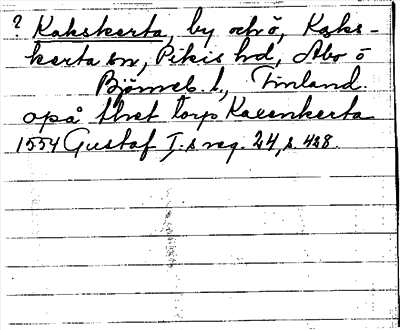 ? Kakskerta, by och ö, Kaks-
kerta sn, Pikis hd, Åbo ö
Björneb. l., Finland.
opå thet torp Kaxenkerta
1554 Gustaf I:s reg. 24, s. 428.